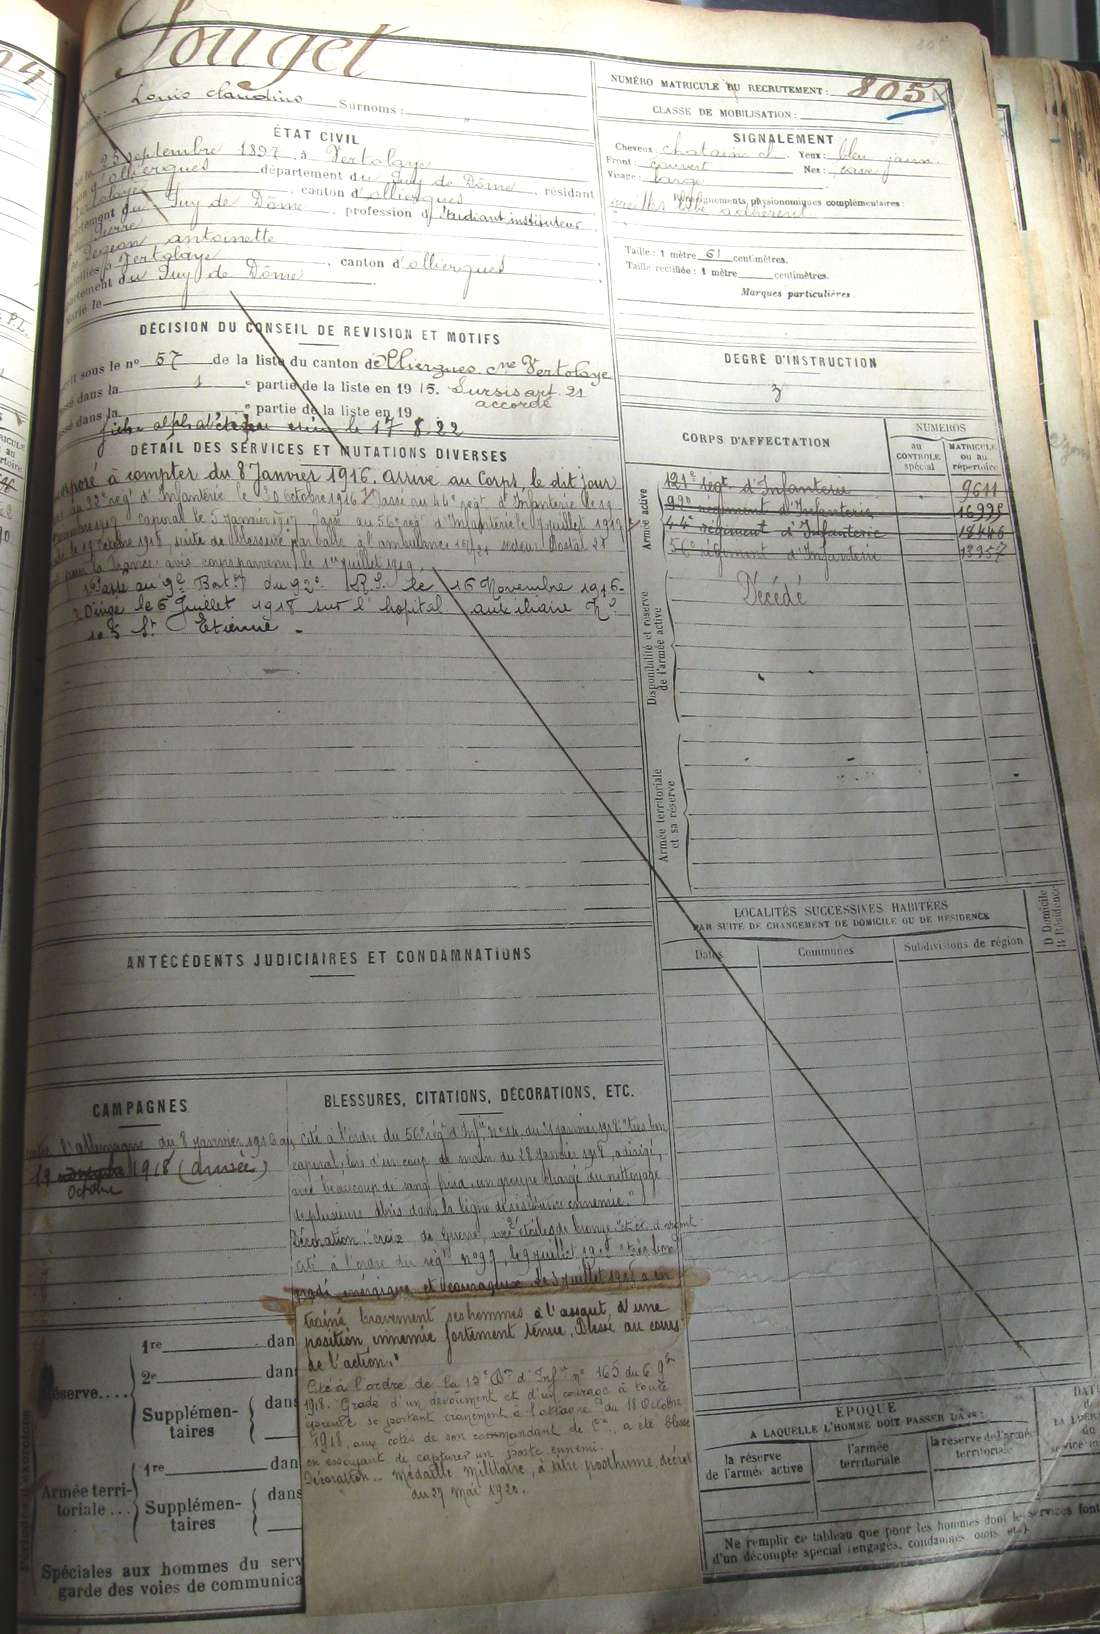 Pouget
NUMÉRO MATRICULE DU RECRUTEMENT : 805
Louis Claudius Surnoms :
CLASSE DE MOBILISATION :
ÉTAT CIVIL
25 septembre 1897, à Vertolaye
d'olliergues département du Puy de Dôme, résidant
canton d'olliergues
du Puy de Dôme, profession d'étudiant instituteur
Pierre
antoinette
à Vertolaye, canton d'olliergues
département du Puy de Dôme
Marié le
SIGNALEMENT
Cheveux : chatain cl. Yeux : bleu jaun.
Front : couvert Nez : cave
Visage : large
Renseignements physionomiques complémentaires :
oreilles lobe adhérent
Taille : 1 mètre 61 centimètres.
Taille rectifiée : 1 mètre centimètres.
Marques particulières
DÉCISION DU CONSEIL DE REVISION ET MOTIFS
sous le n° 57 de la liste du canton d'Olliergues cne Vertolaye
dans la 1 e partie de la liste en 1915. Sursis art. 21
accordé
dans la e partie de la liste en 19
le 17.8.22
DEGRÉ D'INSTRUCTION
3
DÉTAIL DES SERVICES ET MUTATIONS DIVERSES
à compter du 8 Janvier 1916. arrivé au Corps, le dit jour
d'Infanterie le 30 octobre 1916 Passé au 44e régt d'Infanterie le 19
caporal le 5 janvier 1917. Passé au 56e régt d'Infanterie le juillet 1917
le 19 octobre 1918, suite de blessure par balle à l'ambulance 15/21 secteur Postal 28
pour la france avis corps parvenu le 1er juillet 1919.
1° Passé au 9e Bat.on du 92e R.I. le 16 Novembre 1916-
2 Dirigé le 6 Juillet 1918 sur l'hopital auxiliaire N°
103 St Etienne.
CORPS D'AFFECTATION
NUMÉROS
au CONTROLE spécial
MATRICULE ou au répertoire
Armée active
121e régt d'Infanterie 9611
92e régiment d'Infanterie 16998
44e régiment d'Infanterie 18446
56e régiment d'Infanterie 13957
Disponibilité et réserve de l'armée active
Décédé
Armée territoriale et sa réserve
LOCALITÉS SUCCESSIVES HABITÉES
PAR SUITE DE CHANGEMENT DE DOMICILE OU DE RÉSIDENCE
Dates Communes Subdivisions de région
D Domicile
R Résidence
ANTÉCÉDENTS JUDICIAIRES ET CONDAMNATIONS
CAMPAGNES
l'allemagne du 8 janvier 1916 au
19 novembre 1918 (Armée)
Octobre
BLESSURES, CITATIONS, DÉCORATIONS, ETC.
cité à l'ordre du 56e régt d'Inf.ie n° 14 du 31 janvier 1918 "très bon
caporal, lors d'un coup de main du 28 janvier 1918, a dirigé,
avec beaucoup de sang froid, un groupe chargé du nettoyage
de plusieurs abris dans la ligne de résistance ennemie."
Décoration : croix de Guerre, avec étoiles de bronze et et. d'argent
cité à l'ordre du régt n° 99, le 9 juillet 1918 "très bon
gradé énergique et courageux le 3 juillet 1918 a en
trainé bravement ses hommes à l'assaut d'une
position ennemie fortement tenue, Blessé au cours
de l'action."
Cité à l'ordre de la 15e Don d'Infie n° 165 du 6 9bre
1918. Gradé d'un dévoûment et d'un courage à toute
épreuve se portant crânement à l'attaque du 18 Octobre
1918, aux côtés de son commandant de Cie, a été blessé
en essayant de capturer un poste ennemi.
Décoration - Médaille Militaire, à titre posthume, décret
du 27 Mai 1920.
Réserve....
1re dans
2e dans
Supplémentaires dans
Armée territoriale ...
1re dans
Supplémentaires dans
Spéciales aux hommes du serv
garde des voies de communica
ÉPOQUE
A LAQUELLE L'HOMME DOIT PASSER DANS :
la réserve de l'armée active
l'armée territoriale
la réserve de l'armée territoriale
Ne remplir ce tableau que pour les hommes dont les services font
d'un décompte spécial (engagés, condamnés, omis, etc.)